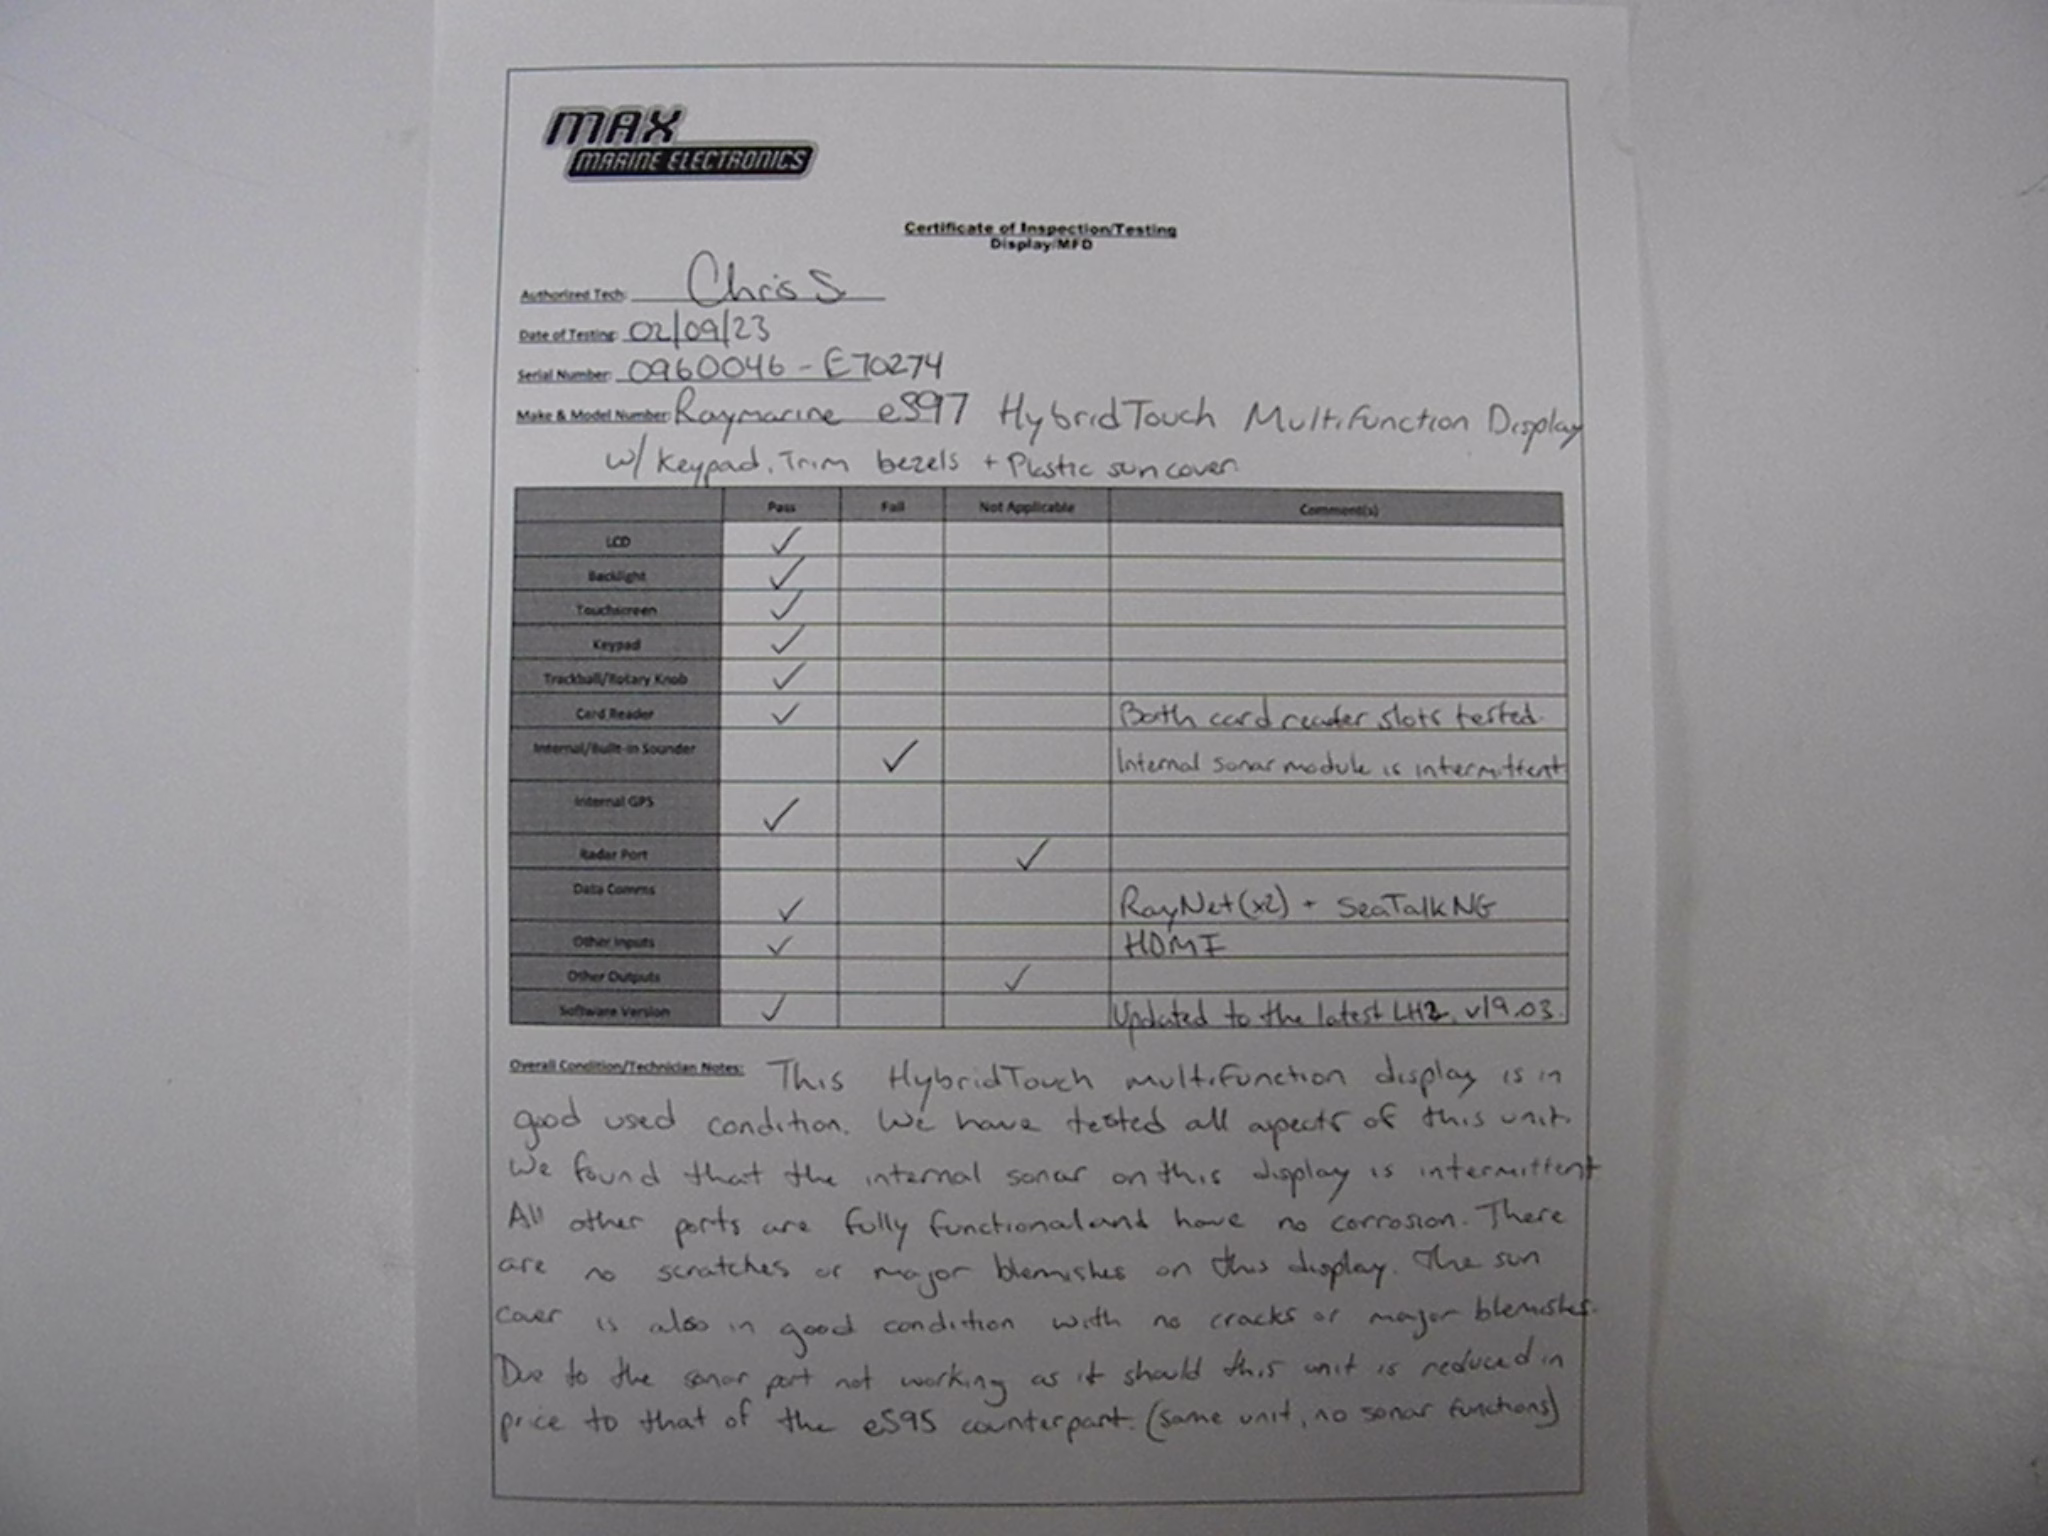 MAX
MARINE ELECTRONICS
Certificate of Inspection/Testing
Display/MFD
Authorized Tech: Chris S
Date of Testing: 02/09/23
Serial Number: 0960046 - E70274
Make & Model Number: Raymarine eS97 HybridTouch Multifunction Display
w/ Keypad, Trim bezels + Plastic sun cover.
Pass Fail Not Applicable Comment(s)
LCD ✓
Backlight ✓
Touchscreen ✓
Keypad ✓
Trackball/Rotary Knob ✓
Card Reader ✓ Both card reader slots tested.
Internal/Built-in Sounder ✓ Internal sonar module is intermittent
Internal GPS ✓
Radar Port ✓
Data Comms ✓ RayNet(x2) + SeaTalk NG
Other Inputs ✓ HDMI
Other Outputs ✓
Software Version ✓ Updated to the latest LH2, v19.03.
Overall Condition/Technician Notes: This HybridTouch multifunction display is in
good used condition. We have tested all apects of this unit.
We found that the internal sonar on this display is intermittent
All other ports are fully functional and have no corrosion. There
are no scratches or major blemishes on this display. The sun
cover is also in good condition with no cracks or major blemishes.
Due to the sonar port not working as it should this unit is reduced in
price to that of the eS95 counterpart. (same unit, no sonar functions)